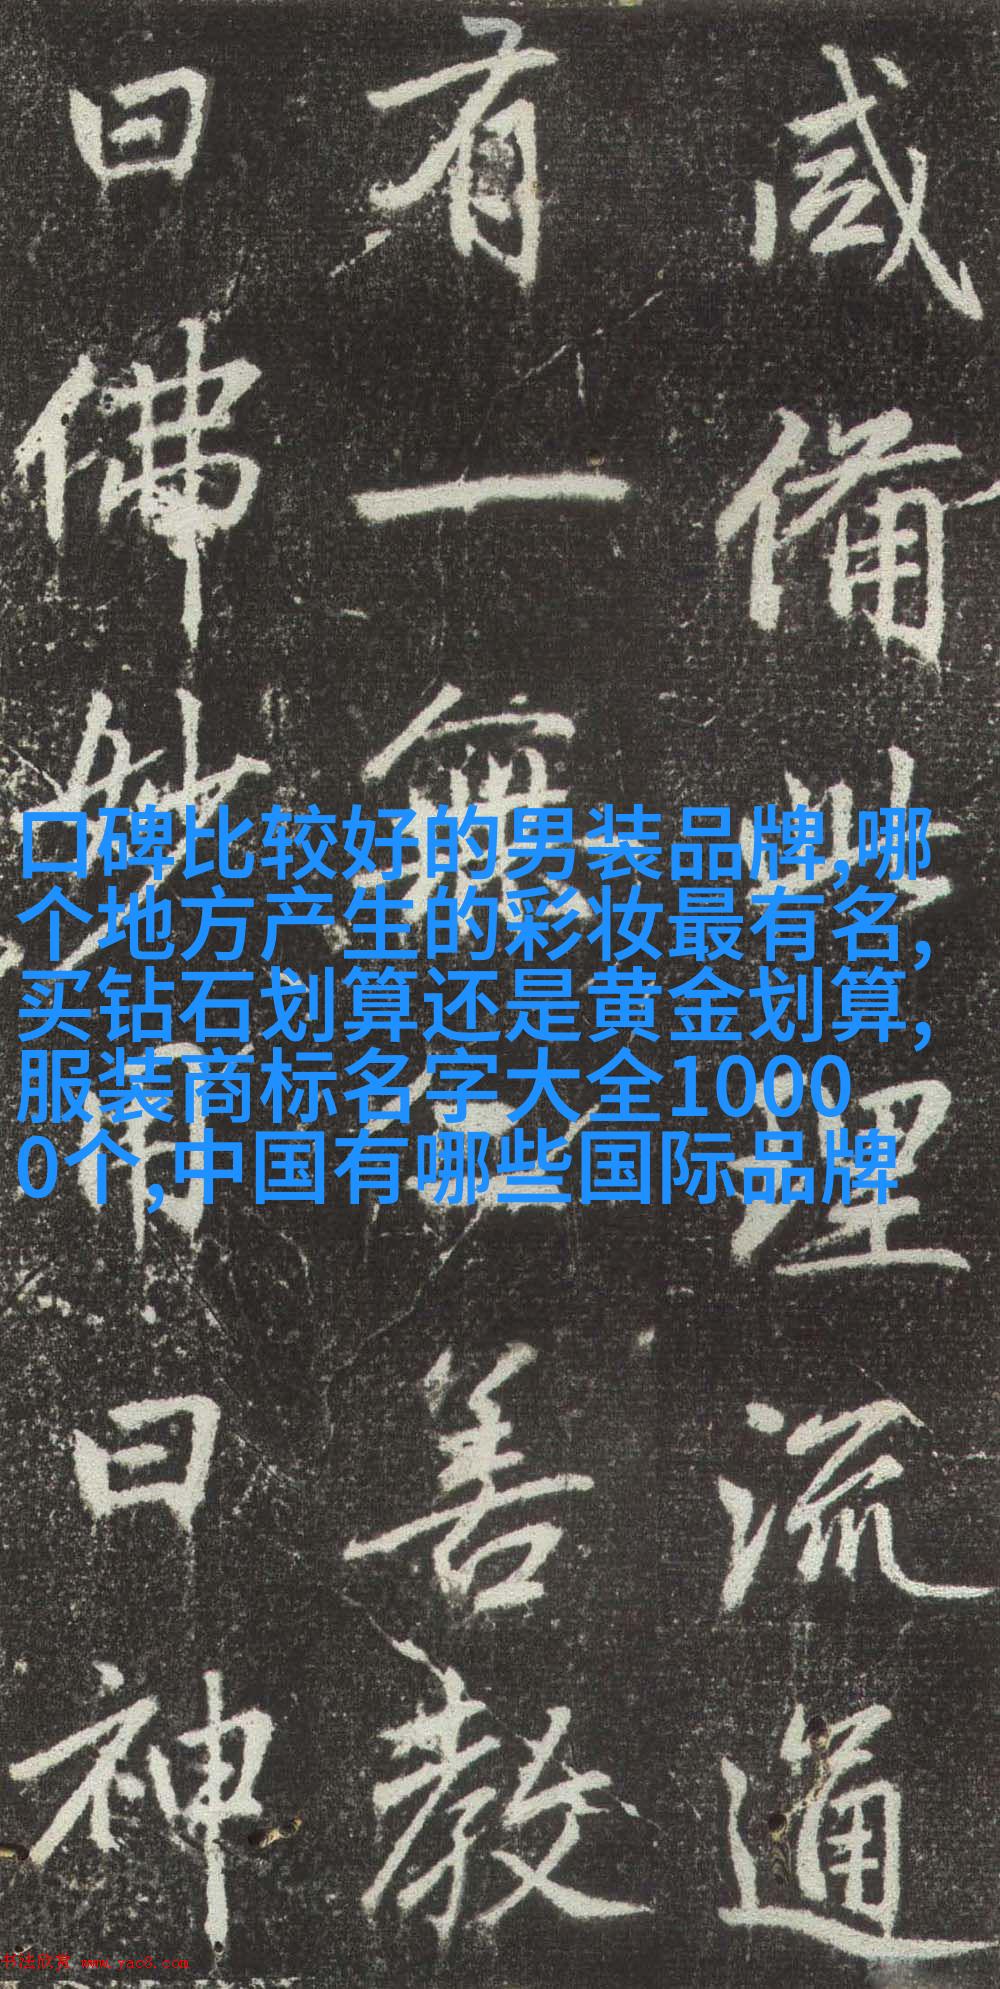 咸備此理流通
有一無善教
曰佛妙用曰神
口碑比较好的男装品牌,哪
个地方产生的彩妆最有名,
买钻石划算还是黄金划算,
服装商标名字大全1000
0个,中国有哪些国际品牌
书法欣赏 www.yac8.com